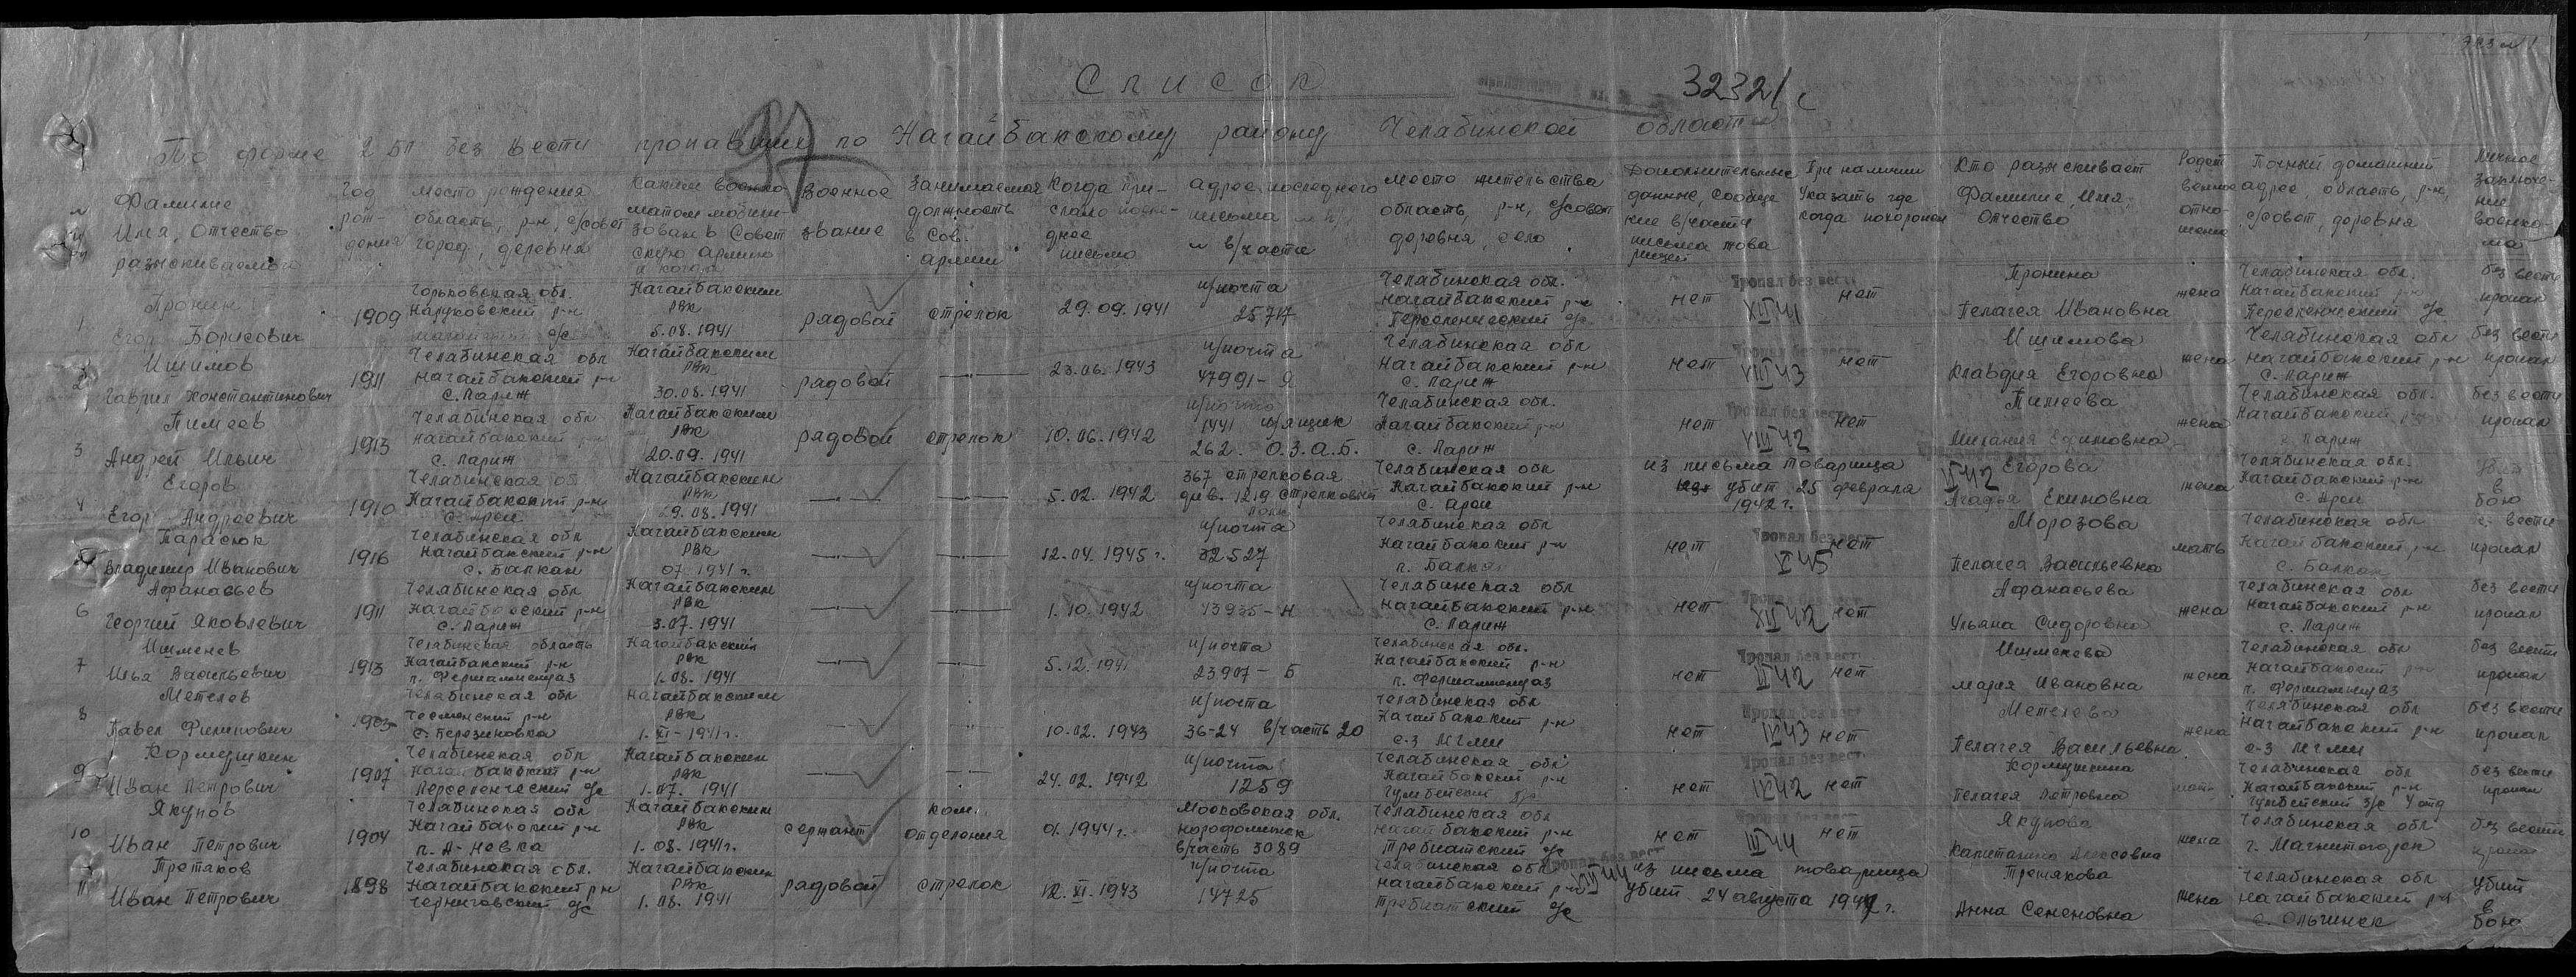 Список
32321с
97
По форме 2 БП без вести пропавших по Нагайбакскому району Челябинской области
Фамилие Имя, Отчество разыскиваемого
Год рождения
Место рождения область, р-н, с/совет город, деревня
Каким военкоматом мобилизован в Совет скую армию и когда
Военное звание
Занимаемая должность в Сов. армии
Когда прислано последнее письмо
Адрес последнего письма и в/части
Место жительства область, р-н, с/совет деревня, село
Дополнительные данные, сообщение в/части письма товарищей
При наличии указать где когда похоронен
Кто разыскивает Фамилие, Имя Отчество
Родственное отношение
Полный домашний адрес область, р-н, с/совет, деревня
Личное заключение военкома
1 Пронин Егор Борисович
1909
Горьковская обл. Наруковский р-н с/с
Нагайбакским РВК 5.08.1941
рядовой
стрелок
29.09.1941
п/почта 25717
Челябинская обл. Нагайбакский р-н Переселенческий с/с
нет
Пропал без вести XII 41
нет
Пронина Пелагея Ивановна
жена
Челябинская обл. Нагайбакский р-н Переселенческий с/с
без вести пропал
2 Ишимов Гаврил Константинович
1911
Челябинская обл Нагайбакский р-н с. Париж
Нагайбакским РВК 30.08.1941
рядовой
—"—
23.06.1943
п/почта 47991-Я
Челябинская обл Нагайбакский р-н с. Париж
нет
Пропал без вести VIII 43
нет
Ишимова Клавдия Егоровна
жена
Челябинская обл Нагайбакский р-н с. Париж
без вести пропал
3 Тимеев Андрей Ильич
1913
Челябинская обл Нагайбакский р-н с. Париж
Нагайбакским РВК 20.09.1941
рядовой
стрелок
10.06.1942
п/почта 1441 п/ящик 262. О.З.А.Б.
Челябинская обл. Нагайбакский р-н с. Париж
нет
Пропал без вести VIII 42
нет
Тимеева Мелания Ефимовна
жена
Челябинская обл. Нагайбакский р-н с. Париж
без вести пропал
4 Егоров Егор Андреевич
1910
Челябинская об Нагайбакский р-н с. Арси
Нагайбакским РВК 29.08.1941
—"—
—"—
5.02.1942
367 стрелковая див. 1219 стрелковый полк
Челябинская обл Нагайбакский р-н с. Арси
из письма товарища убит 25 февраля 1942 г.
V 42
Егорова Екимовна
жена
Челябинская обл. Нагайбакский р-н с. Арси
убит в бою
5 Парасюк Владимир Иванович
1916
Челябинская обл Нагайбакский р-н с. Балкан
Нагайбакским РВК 07.1941 г.
—"—
—"—
12.04.1945 г.
п/почта 32527
Челябинская обл Нагайбакский р-н п. Балкан
нет
Пропал без вести V 45
нет
Морозова Пелагея Васильевна
мать
Челябинская обл Нагайбакский р-н с. Балкан
вести пропал
6 Афанасьев Георгий Яковлевич
1911
Челябинская обл Нагайбакский р-н с. Париж
Нагайбакским РВК 3.07.1941
—"—
—"—
1.10.1942
п/почта 43935-Н
Челябинская обл Нагайбакский р-н с. Париж
нет
XII 42
нет
Афанасьева Ульяна Сидоровна
жена
Челябинская обл Нагайбакский р-н с. Париж
без вести пропал
7 Ишменев Илья Васильевич
1913
Челябинская область Нагайбакский р-н п. Фершампенуаз
Нагайбакский РВК 1.08.1941
—"—
—"—
5.12.1941
п/почта 23907-Б
Челябинская обл. Нагайбакский р-н п. Фершампенуаз
нет
Пропал без вести II 42
нет
Ишменева Мария Ивановна
жена
Челябинская обл Нагайбакский р-н п. Фершампенуаз
без вести пропал
8 Метелев Павел Филиппович
1903
Челябинская обл Чесменский р-н с. Березиновка
Нагайбакским РВК 1.XI-1941г.
—"—
—"—
10.02.1943
п/почта 36-24 в/часть 20
Челябинская обл Нагайбакский р-н с-з
нет
Пропал без вест IV 43
нет
Метелева Пелагея Васильевна
жена
Челябинская обл Нагайбакский р-н с-з
без вести пропал
9 Кормушкин Иван Петрович
1907
Челябинская обл Нагайбакский р-н Переселенческий с/с
Нагайбакским РВК 1.07.1941
—"—
—"—
24.02.1942
п/почта 1259
Челябинская обл Нагайбакский р-н Гумбейский з/с
нет
Пропал без вест IV 42
нет
Кормушкина Пелагея Петровна
Челябинская обл Нагайбакский р-н Гумбейский з/с 4 отд
без вести пропал
10 Якупов Иван Петрович
1904
Челябинская обл Нагайбакский р-н п. А-Невка
Нагайбакским РВК 1.08.1941г.
сержант
ком. отделения
01.1944 г.
Московская обл. Норофоминск в/часть 3089
Челябинская обл Нагайбакский р-н Требиатский с/с
нет
Пропал без вест III 44
нет
Якупова Капиталина
жена
Челябинская обл г. Магнитогорск
без вести пропал
11 Третяков Иван Петрович
1898
Челябинская обл. Нагайбакский р-н Черниговский с/с
Нагайбакским РВК 1.08.1941
рядовой
стрелок
12.XI.1943
п/почта 14725
Челябинская обл Нагайбакский р-н Требиатский с/с
Пропал без вест
из письма товарища убит 24 августа 1944 г.
Третякова Анна Семеновна
жена
Челябинская обл Нагайбакский р-н с. Ольгинск
убит в бою